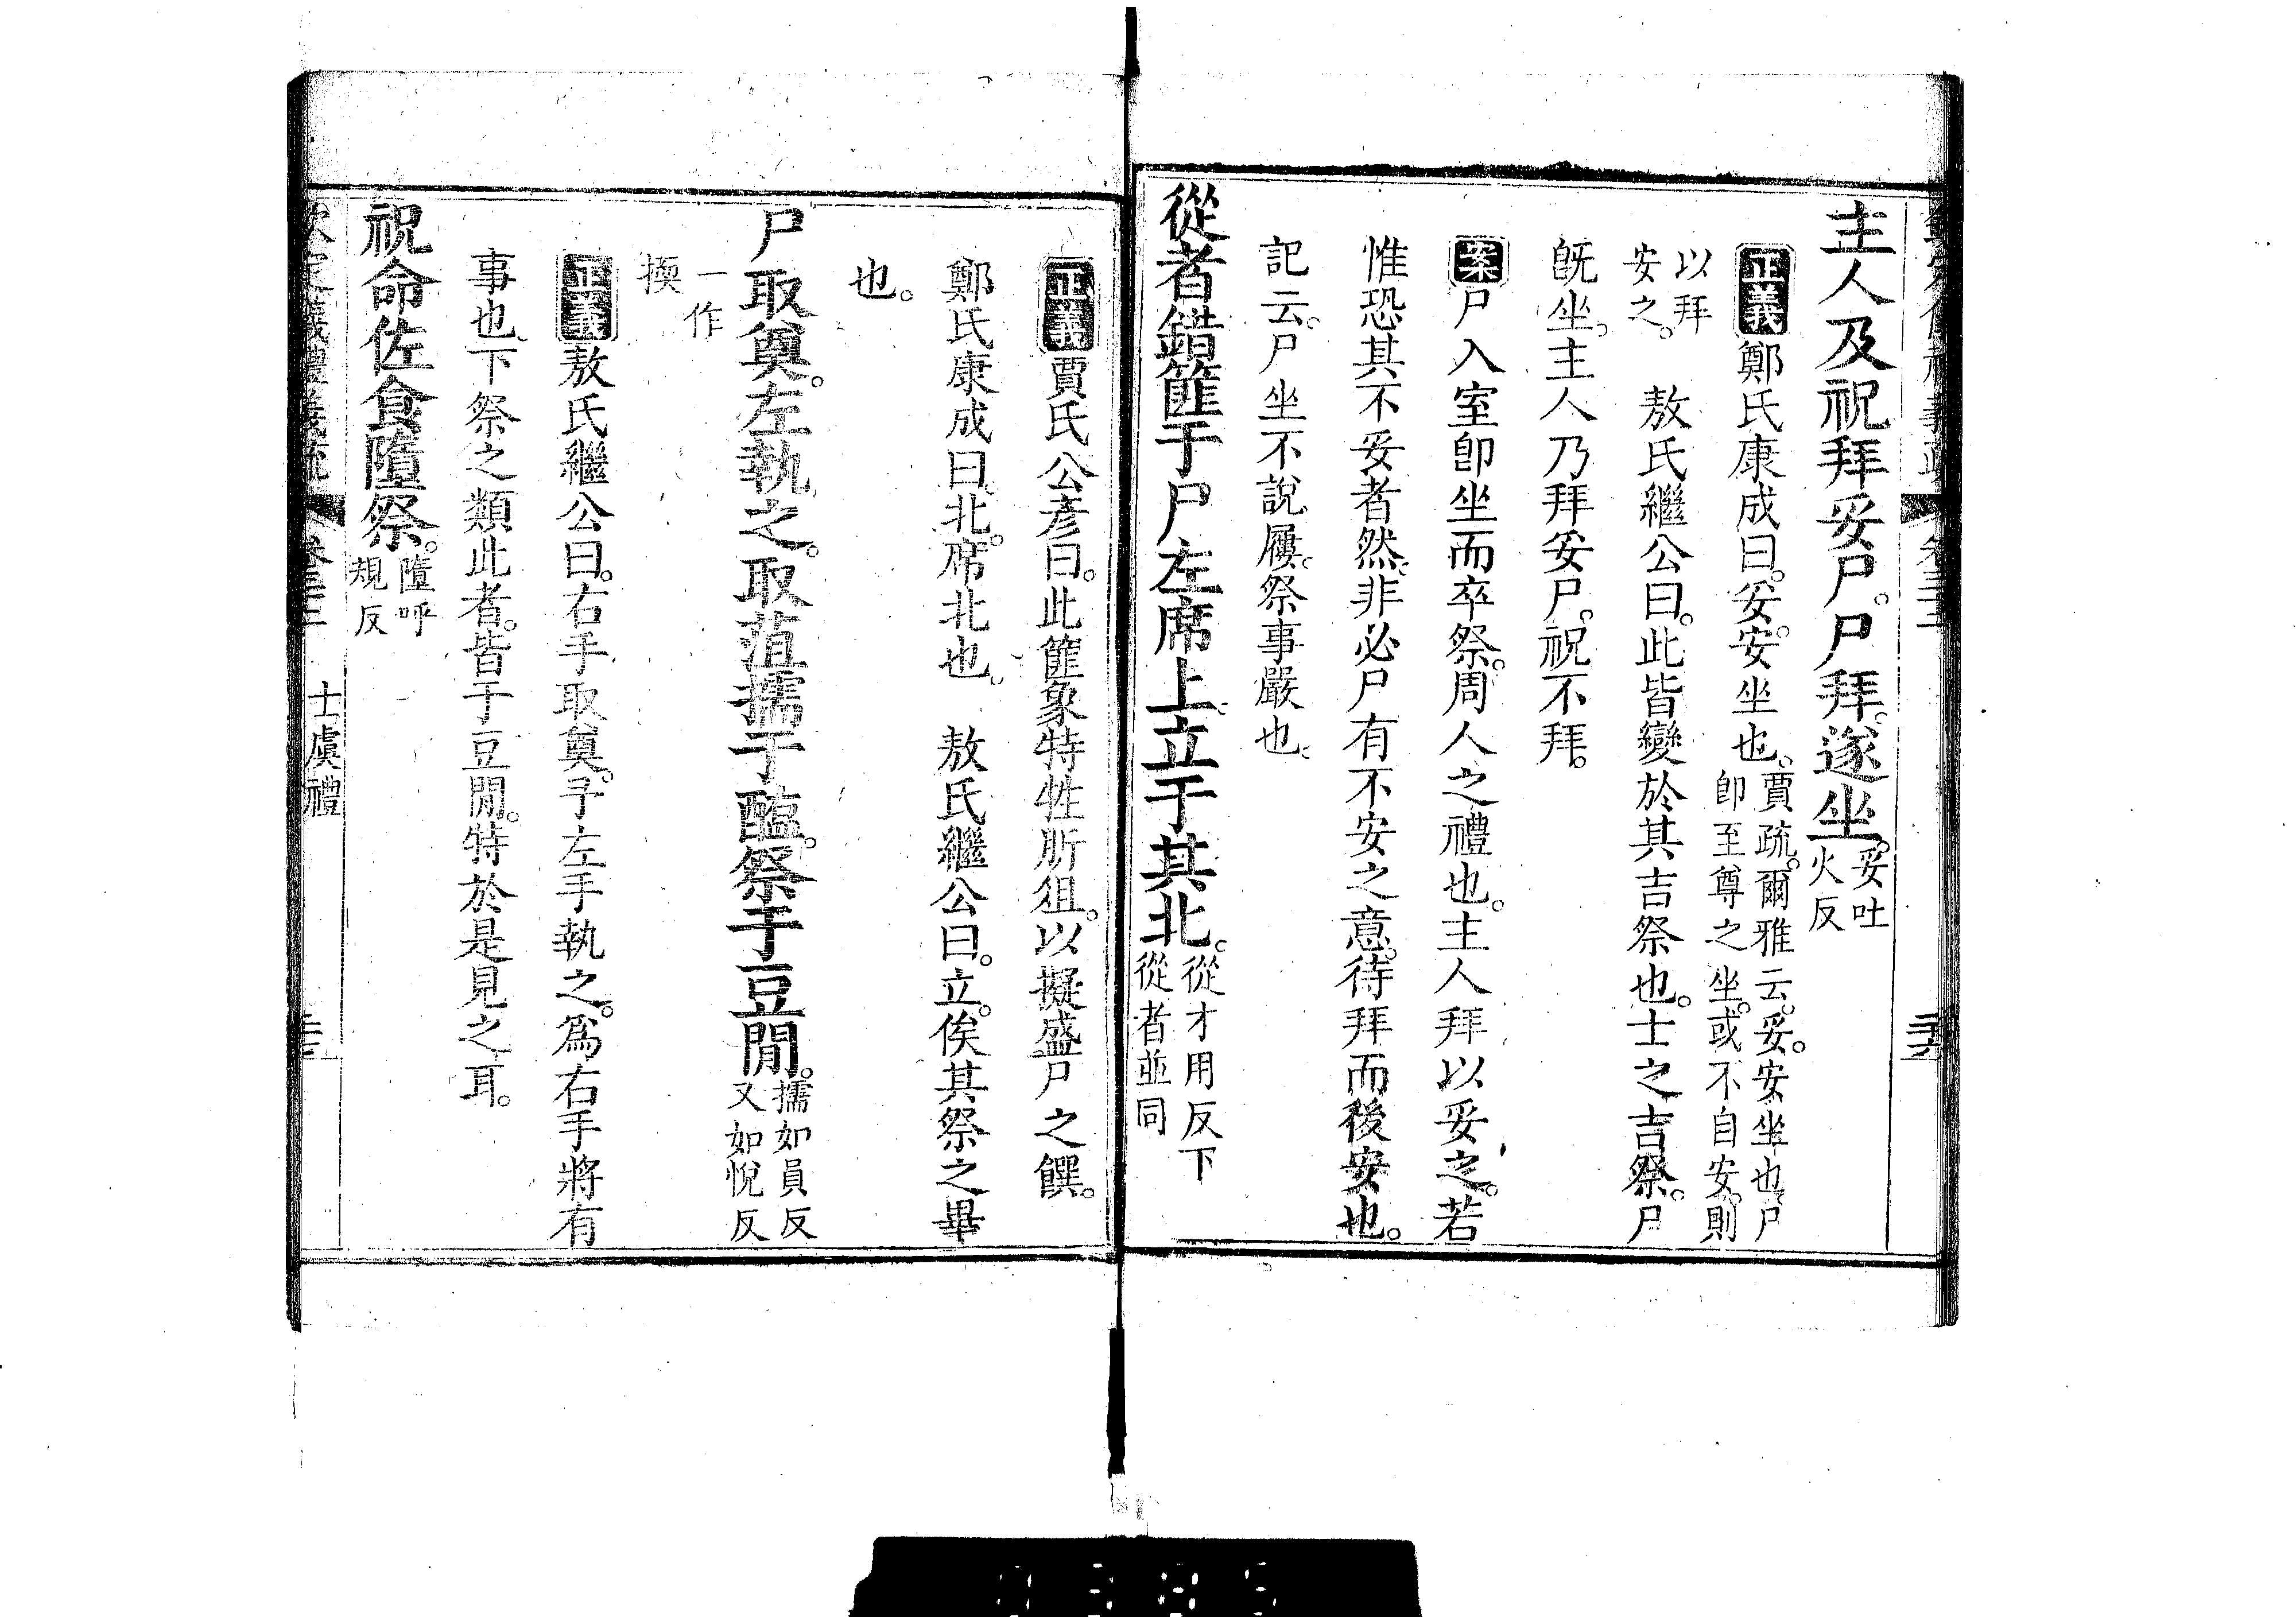 主人及祝拜妥尸。尸拜。遂坐。妥吐火反
正義鄭氏康成曰。妥。安坐也。賈疏。爾雅云。妥。安坐也。尸即至尊之坐。或不自安。則
以拜安之。　敖氏繼公曰。此皆變於其吉祭也。士之吉祭。尸
旣坐。主人乃拜妥尸。祝不拜。
案尸入室卽坐而卒祭。周人之禮也。主人拜以妥之。若
惟恐其不妥者然。非必尸有不安之意。待拜而後安也。
記云。尸坐不說屨。祭事嚴也。
從者錯篚于尸左席上。立于其北。從才用反下從者並同
正義賈氏公彥曰。此篚象特牲肵俎。以擬盛尸之饌。
鄭氏康成曰。北。席北也。　敖氏繼公曰。立。俟其祭之畢
也。
尸取奠。左執之。取菹擩于醢。祭于豆閒。擩如員反又如悅反
一作㨎
正義敖氏繼公曰。右手取奠。予左手執之。爲右手將有
事也。下祭之類此者。皆于豆閒。特於是見之耳。
祝命佐食隋祭。隋呼規反
士虞禮